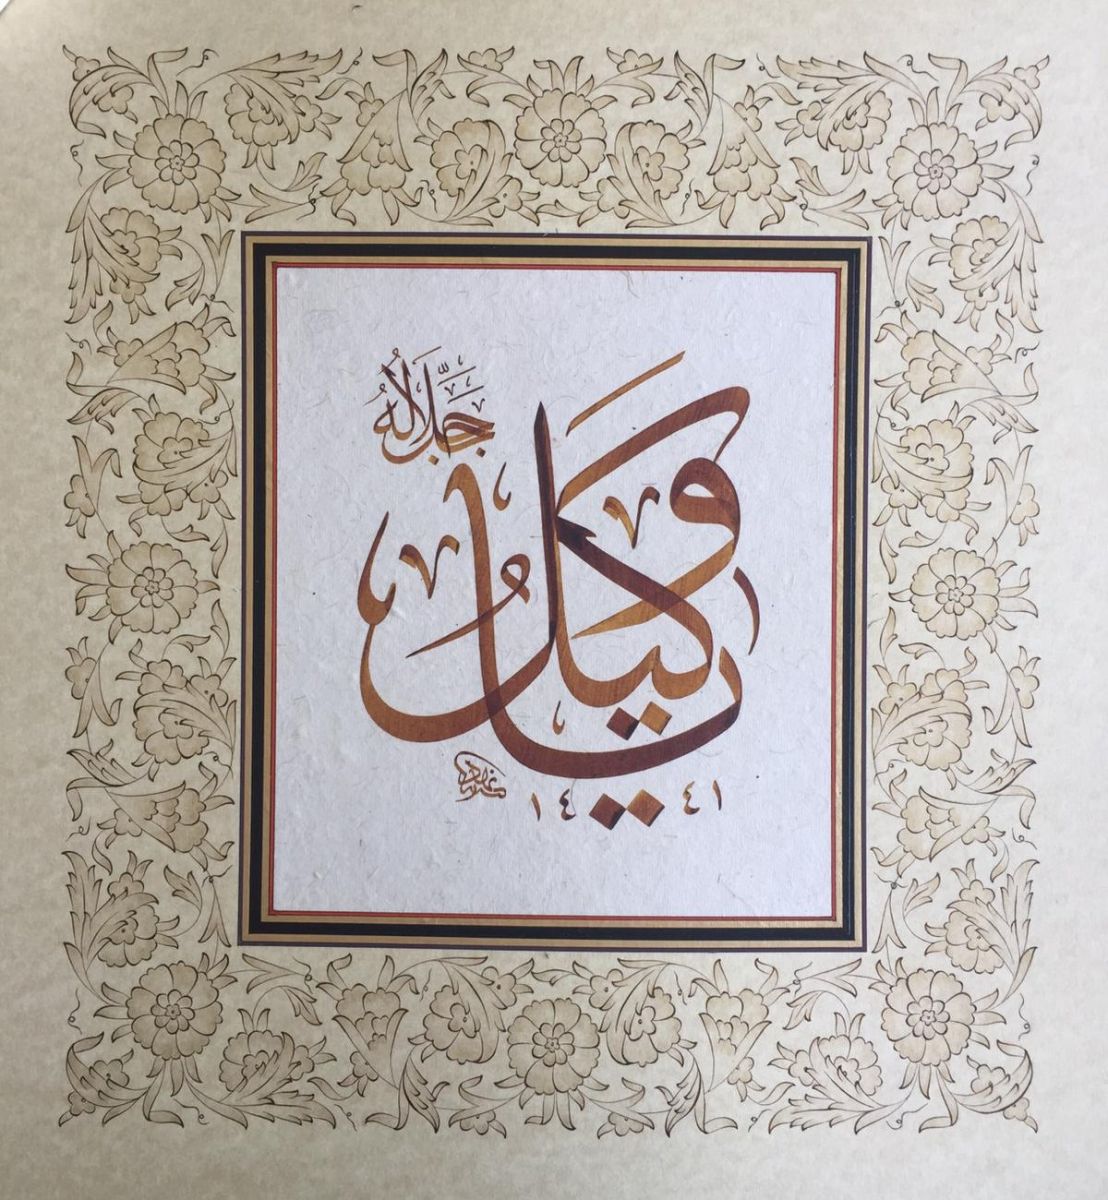 يا وَكيلُ
جَلَّ جَلَالُهُ
١٤٤١